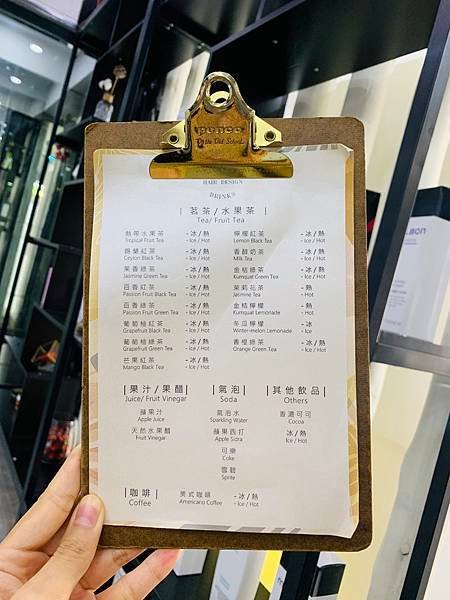 penco
HAIR DESIGN
DRINKS
| 茗茶/水果茶 |
Tea/ Fruit Tea
熱帶水果茶 - 冰/熱
Tropical Fruit Tea - Ice / Hot
錫蘭紅茶 - 冰/熱
Ceylon Black Tea - Ice / Hot
茉香綠茶 - 冰/熱
Jasmine Green Tea - Ice / Hot
百香紅茶 - 冰/熱
Passion Fruit Black Tea - Ice / Hot
百香綠茶 - 冰/熱
Passion Fruit Green Tea - Ice / Hot
葡萄柚紅茶 - 冰/熱
Grapefruit Black Tea - Ice / Hot
葡萄柚綠茶 - 冰/熱
Grapefruit Green Tea - Ice / Hot
芒果紅茶 - 冰/熱
Mango Black Tea - Ice / Hot
檸檬紅茶 - 冰/熱
Lemon Black Tea - Ice / Hot
香醇奶茶 - 冰/熱
Milk Tea - Ice / Hot
金桔綠茶 - 冰/熱
Kumquat Green Tea - Ice / Hot
茉莉花茶 - 熱
Jasmine Tea - Hot
金桔檸檬 - 熱
Kumquat Lemonade - Hot
冬瓜檸檬 - 冰
Winter-melon Lemonade - Ice
香橙綠茶 - 冰/熱
Orange Green Tea - Ice / Hot
| 果汁/果醋 |
Juice/ Fruit Vinegar
蘋果汁
Apple Juice
天然水果醋
Fruit Vinegar
| 氣泡 |
Soda
氣泡水
Sparkling Water
蘋果西打
Apple Sidra
可樂
Coke
雪碧
Sprite
| 其他飲品 |
Others
香濃可可
Cocoa
冰/熱
Ice / Hot
| 咖啡 |
Coffee
美式咖啡 - 冰/熱
Americano Coffee - Ice / Hot